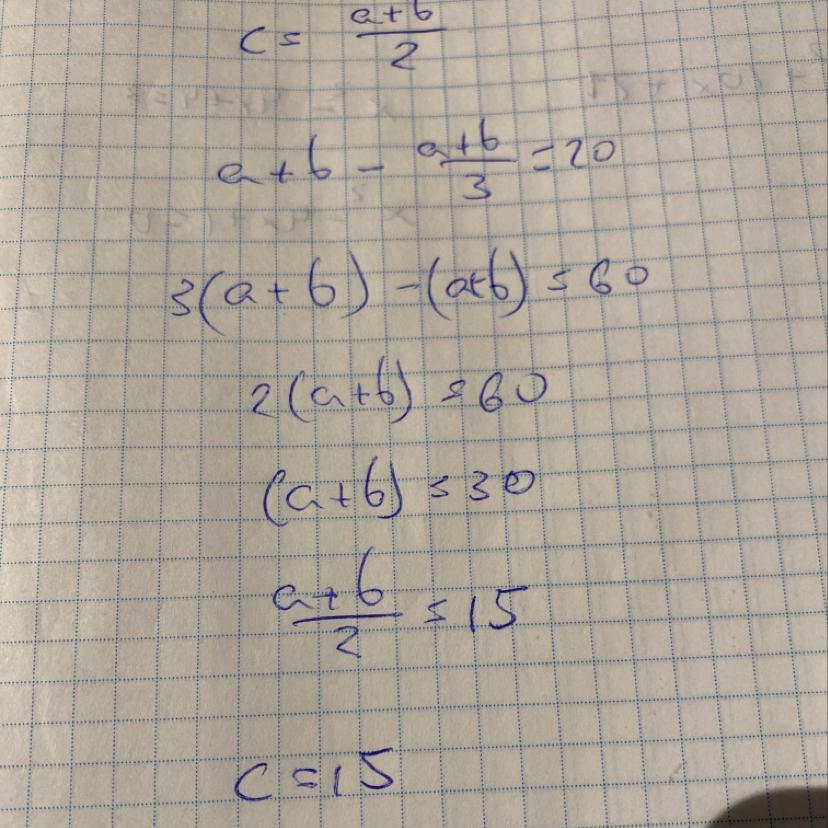 c = (a+b)/2
a+b - (a+b)/3 = 20
3(a+b) - (a+b) = 60
2(a+b) = 60
(a+b) = 30
(a+b)/2 = 15
c = 15